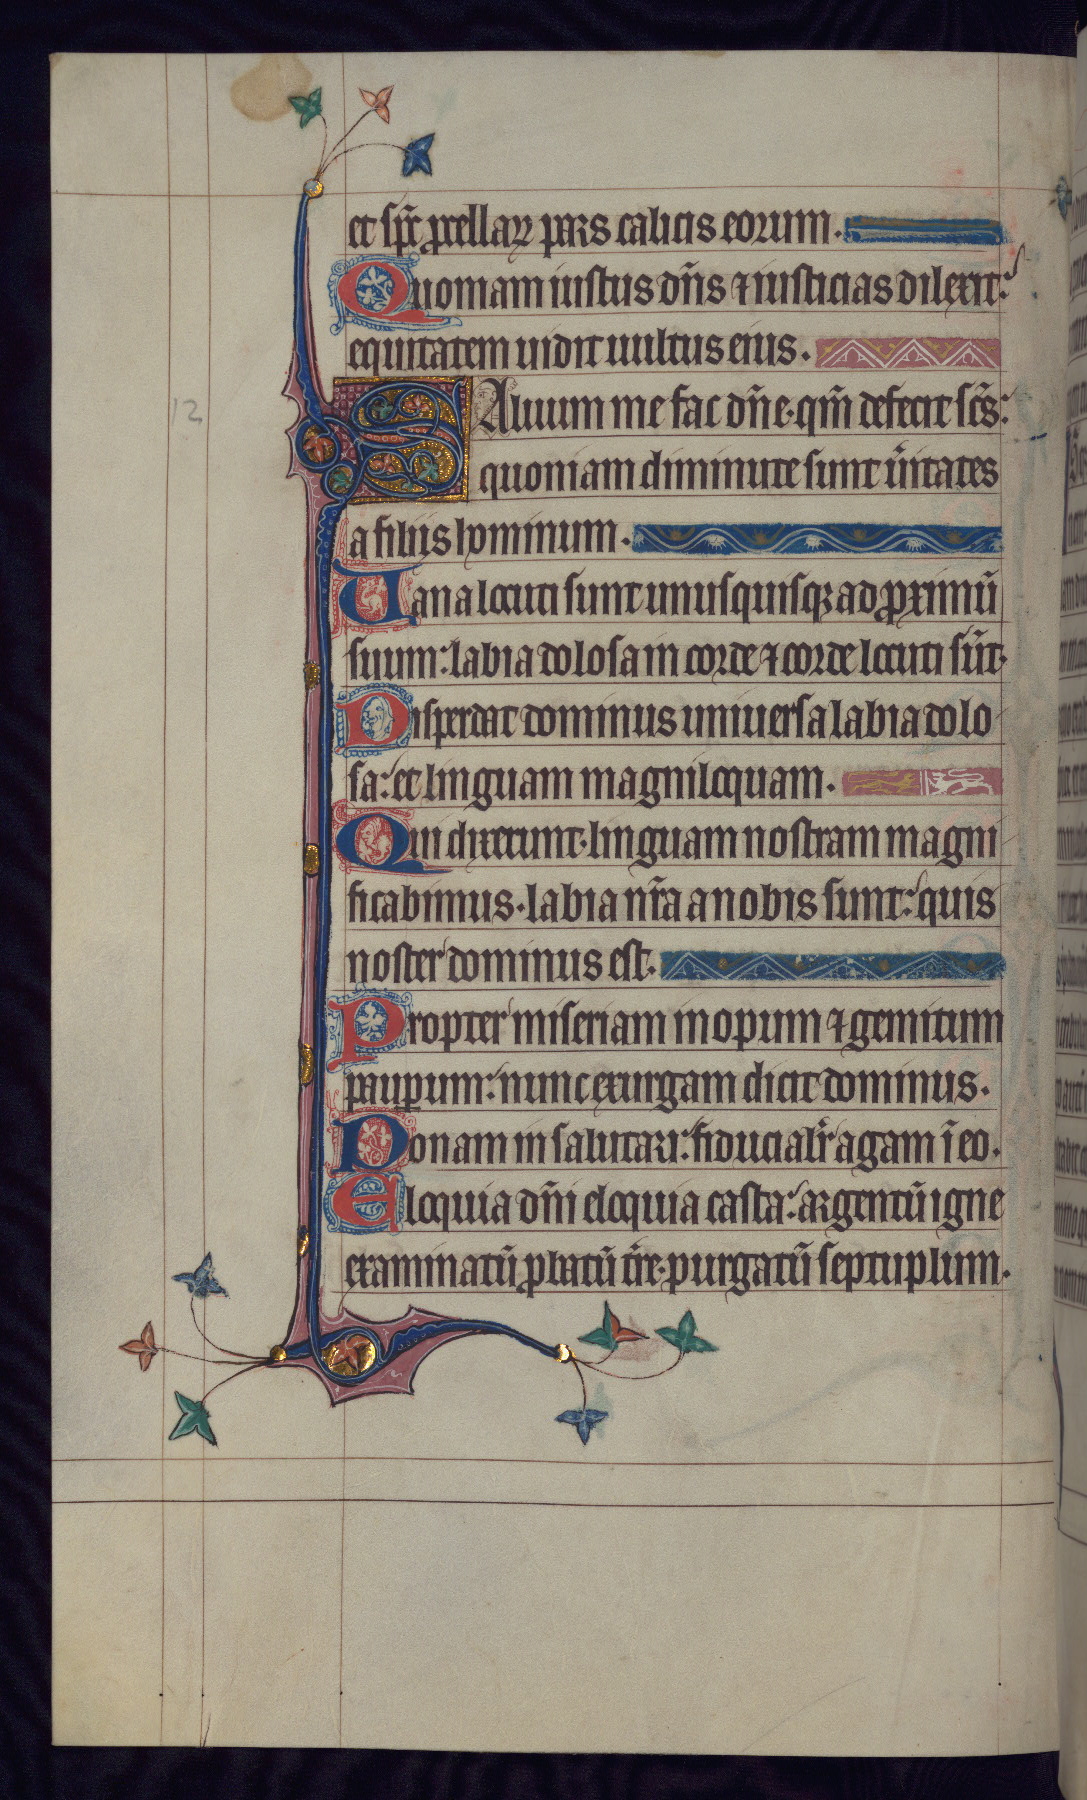 et sp̄c ꝓcellaꝝ pars calicis eorum.
Quoniam iustus dn̄s ⁊ iusticias dilexit:
equitatem uidit uultus eius.
12
Saluum me fac dn̄e. qm̄ defecit sc̄s:
quoniam diminute sunt ūitates
a filiis hominum.
Uana locuti sunt unusquisqꝫ ad ꝓximū
suum: labia dolosa in corde ⁊ corde locuti sūt.
Disperdat dominus uniuersa labia dolo
sa: et linguam magniloquam.
Qui dixerunt. linguam nostram magni
ficabimus. labia nr̄a a nobis sunt: quis
noster dominus est.
Propter miseriam inopum ⁊ gemitum
pauꝑum: nunc exurgam dicit dominus.
Ponam in salutari: fiducialr̄ agam ī eo.
Eloquia dn̄i eloquia casta: argentū igne
examinatū ꝓbatū t̄re. purgatū septuplum.